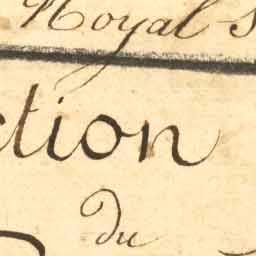 Royal S
ction
du